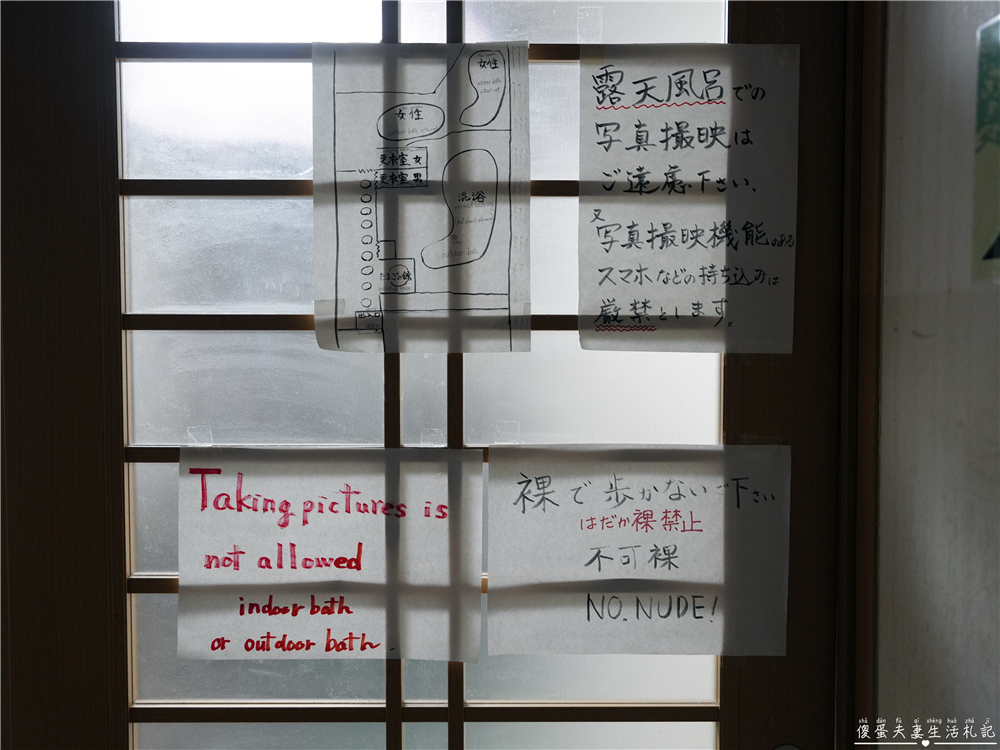 女性
女性
更衣室 女
更衣室 男
混浴
outdoor bath
出入口
露天風呂での
写真撮映は
ご遠慮下さい、
又
写真撮映機能のある
スマホなどの持ち込みは
厳禁とします。
Taking pictures is
not allowed
indoor bath
or outdoor bath.
裸で歩かないで下さい
はだか裸禁止
不可裸
NO. NUDE!
shǎ dàn fū qī shēng huó zhá jì
傻蛋夫妻生活札記